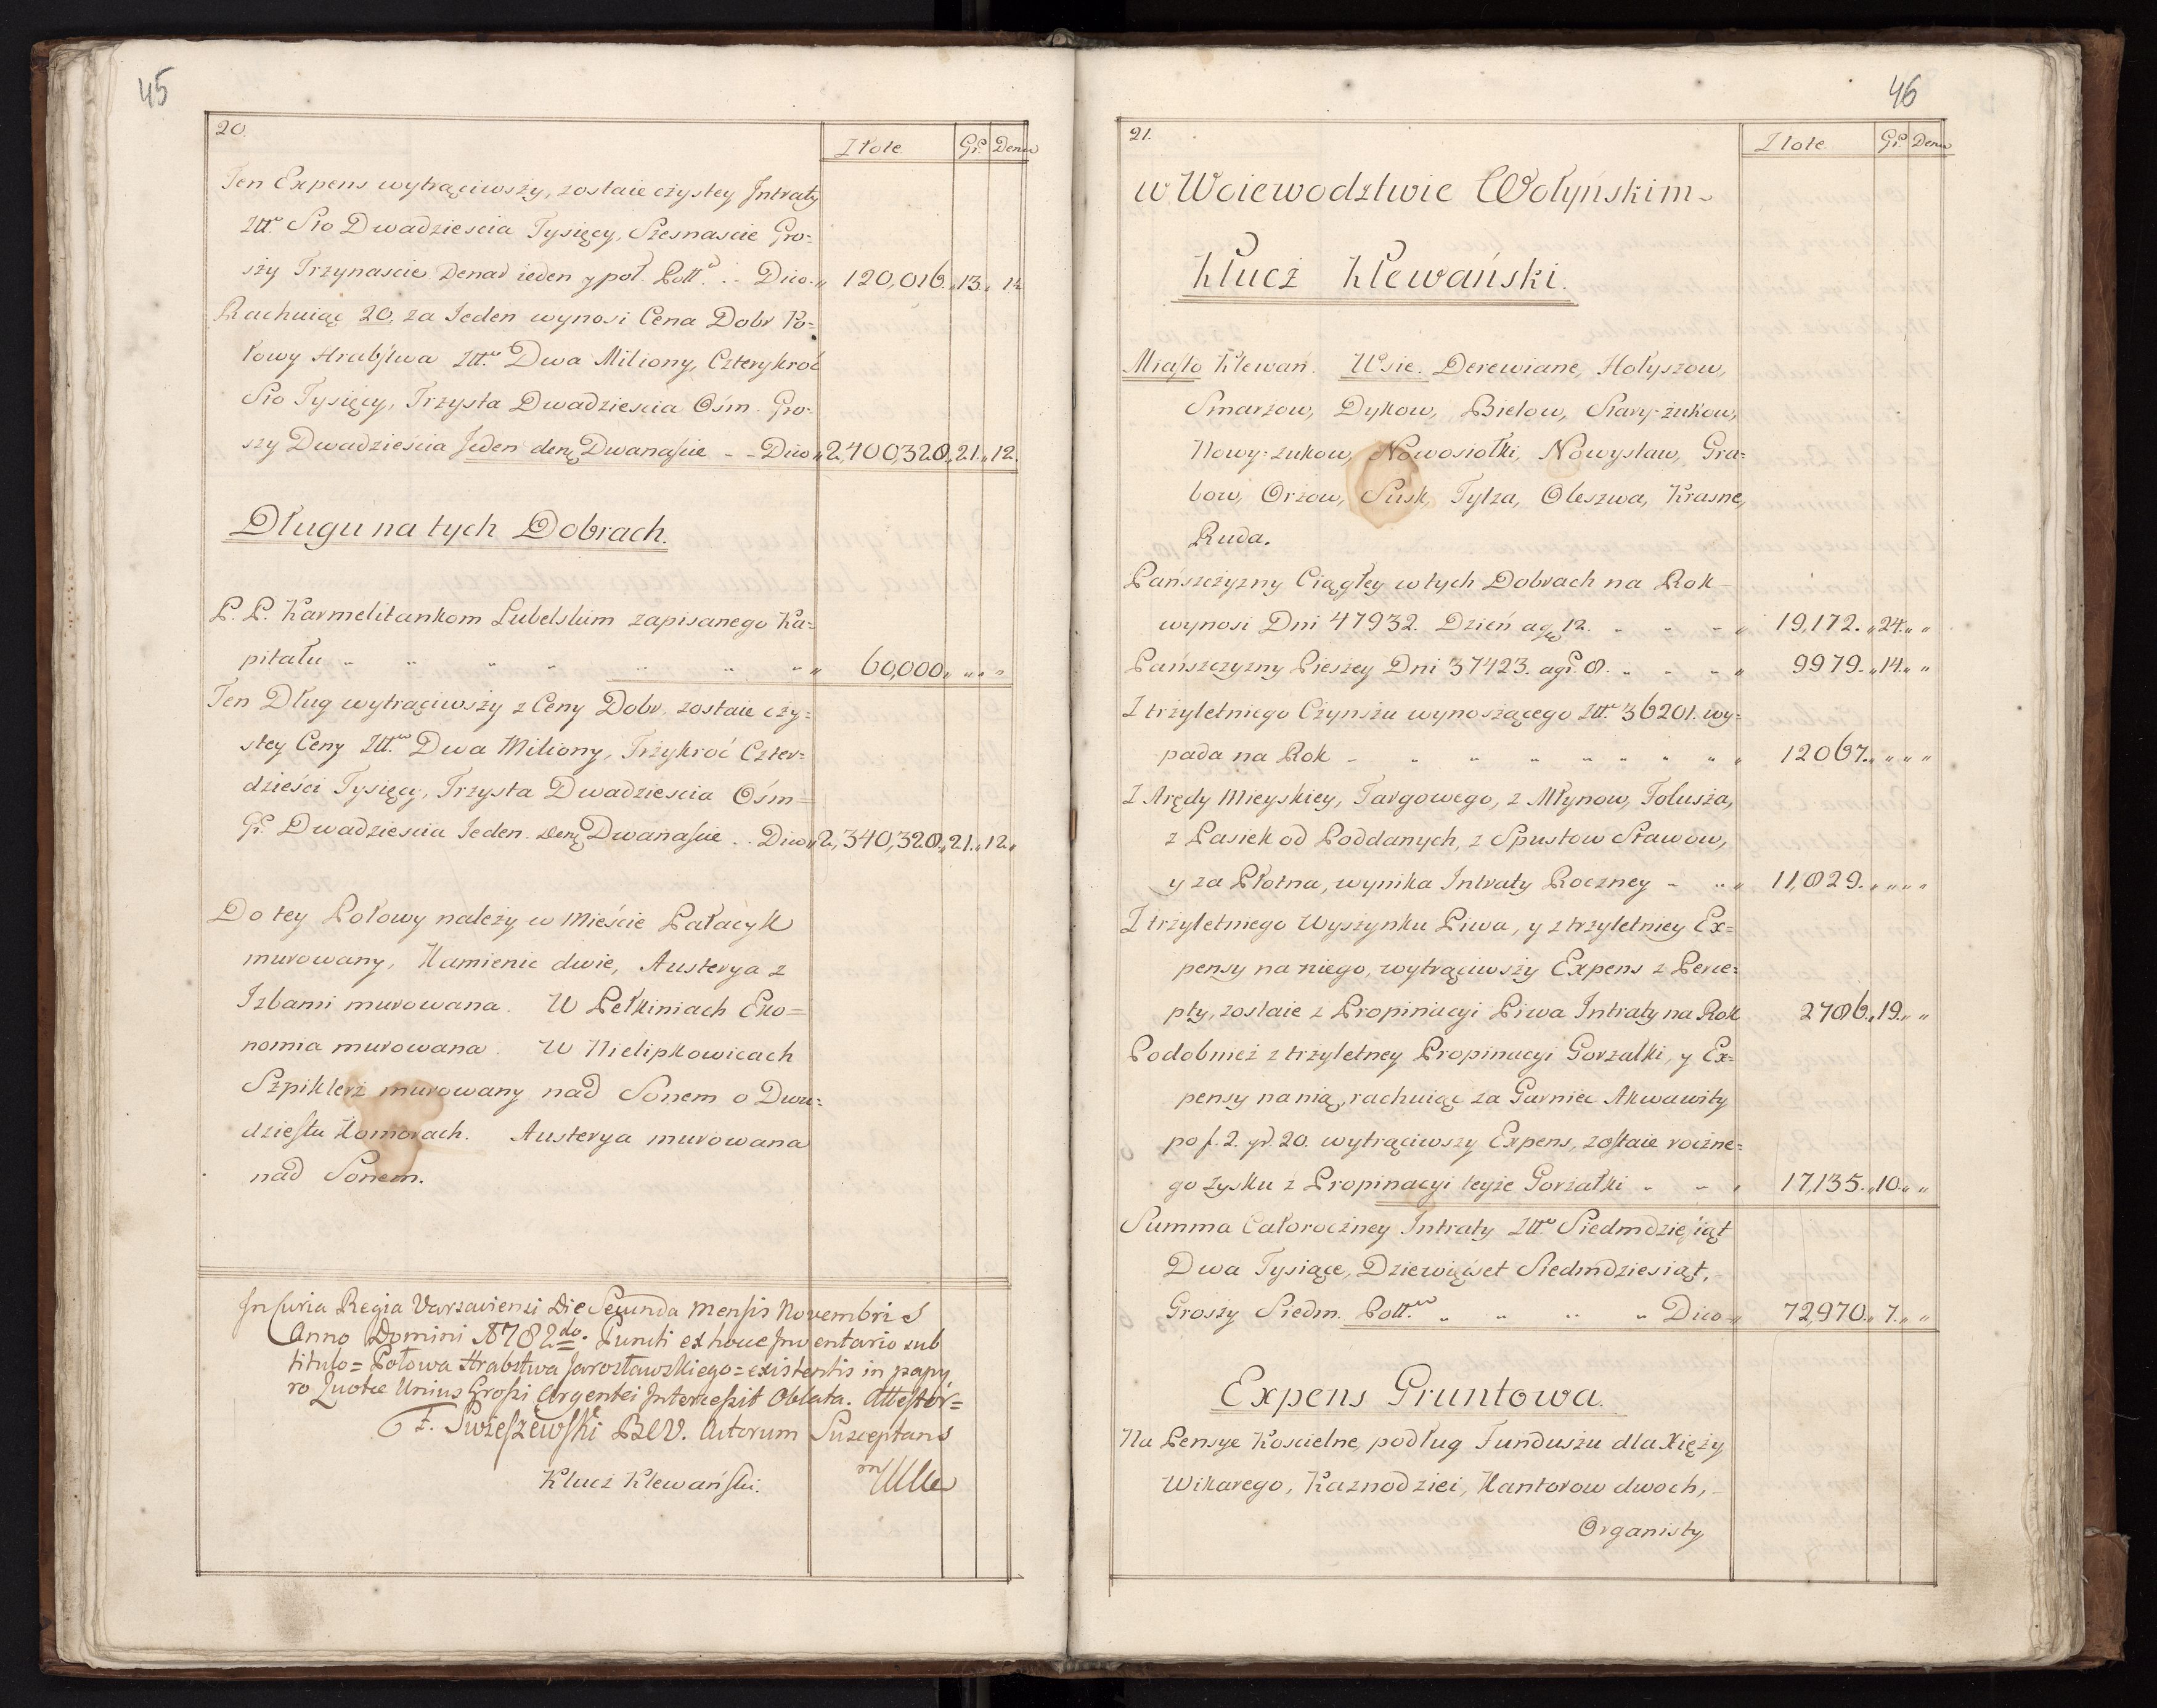 45
20.
Złote. Gr. Denar
Ten Expens wytrąciwszy, zostaie czystey Intraty
Złł. Sto Dwadziescia Tysięcy, Szesnascie Gro=
szy Trzynascie Denar ieden y poł. Poll. .. Dico „ 120,016. „13. „ 1½
Rachuiąc 20, za Ieden wynosi Cena Dobr Po=
łowy Hrabstwa Złł. Dwa Miliony, Czterykroć
Sto Tysięcy, Trzysta Dwadziescia Ośm. Gro=
szy Dwadzieścia Jeden den: Dwanaście - - Dico „ 2,400,328. „21. „12.
Długu na tych Dobrach.
P. P. Karmelitankom Lubelskim zapisanego Ka=
pitału - „ „ „ „ „ „ 60,000 „ „ „
Ten Dług wytrąciwszy z Ceny Dobr, zostaie czy=
stey Ceny Złł. Dwa Miliony, Trzykroć Czter=
dzieści Tysięcy, Trzysta Dwadziescia Ośm=
Gr. Dwadziescia Ieden. Den: Dwanaście .. Dico „2,340,328. „21. „12. „
Do tey Połowy należy w Mieście Pałacyk
murowany, Kamienic dwie, Austerya z
Izbami murowana. W Pełkiniach Eko=
nomia murowana. W Nielipkowicach
Szpiklerz murowany nad Sonem o Dwu=
dziestu Komorach. Austerya murowana
nad Sonem.
In Curia Regia Varsaviensi Die Secunda Mensis Novembris
Anno Domini 1782do. Puncti ex hoce Inventario sub
titulo= Połowa Hrabstwa Jarosławskiego= existentis in papy
ro Quotæ Unius Grossi Argentei Intercessit Oblata. Attestor=
F. Swieszewski Actorum Susceptans
Klucz Klewański.
46
21.
Złote. Gr. Denar
w Woiewodztwie Wołyńskim
Klucz Klewański.
Miasto Klewań. Wsie. Derewiane, Hołyszow,
Smarzow, Dykow, Bielow, Stary-żukow,
Nowy-żukow, Nowosiołki, Nowystaw, Gra=
bow, Orzow, Susk, Tylza, Oleszwa, Krasne,
Ruda.
Pańszczyzny Ciągłey w tych Dobrach na Rok
wynosi Dni 47932. Dzień a gr 12. - - - „ 19,172. „24. „ „
Pańszczyzny Pieszey Dni 37423. a gr. 8. - - - „ 9979. „14. „ „
Z trzyletniego Czynszu wynoszącego Złł. 36201. wy=
pada na Rok - „ „ „ „ „ „ „ „ 12067. „ „ „ „
Z Arędy Mieyskiey, Targowego, z Młynow, Folusza,
z Pasiek od Poddanych, z Spustow Stawow,
y za Płotna, wynika Intraty Roczney - „ „ 11,829. „ „ „ „
Z trzyletniego Wyszynku Piwa, y z trzyletniey Ex=
pensy na niego, wytrąciwszy Expens z Perce=
pty, zostaie z Propinacyi Piwa Intraty na Rok 2786. „19. „ „
Podobnież z trzyletney Propinacyi Gorzałki, y Ex=
pensy na nią, rachuiąc za Garniec Akwawity
po f. 2. gr. 20. wytrąciwszy Expens, zostaie roczne=
go zysku z Propinacyi teyże Gorzałki - - „ 17,135. „10. „ „
Summa Całoroczney Intraty Złł. Siedmdziesiąt
Dwa Tysiące, Dziewięćset Siedmdziesiąt,
Groszy Siedm. Poll. „ „ „ „ Dico „ 72,970. „ 7. „ „
Expens Gruntowa.
Na Pensye Koscielne, podług Funduszu dla Xięży
Wikarego, Kaznodziei, Kantorow dwoch,
Organisty,